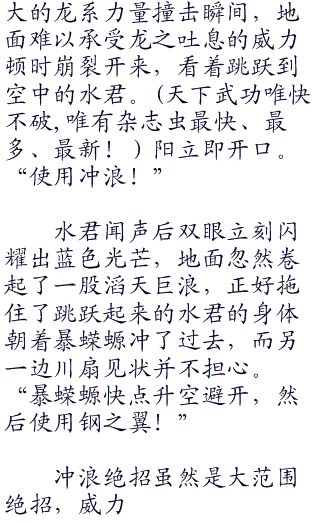 大的龙系力量撞击瞬间，地
面难以承受龙之吐息的威力
顿时崩裂开来，看着跳跃到
空中的水君。(天下武功唯快
不破,唯有杂志虫最快、最
多、最新！ ) 阳立即开口。
“使用冲浪！”
水君闻声后双眼立刻闪
耀出蓝色光芒，地面忽然卷
起了一股滔天巨浪，正好拖
住了跳跃起来的水君的身体
朝着暴蝾螈冲了过去，而另
一边川扇见状并不担心。
“暴蝾螈快点升空避开，然
后使用钢之翼！”
冲浪绝招虽然是大范围
绝招，威力